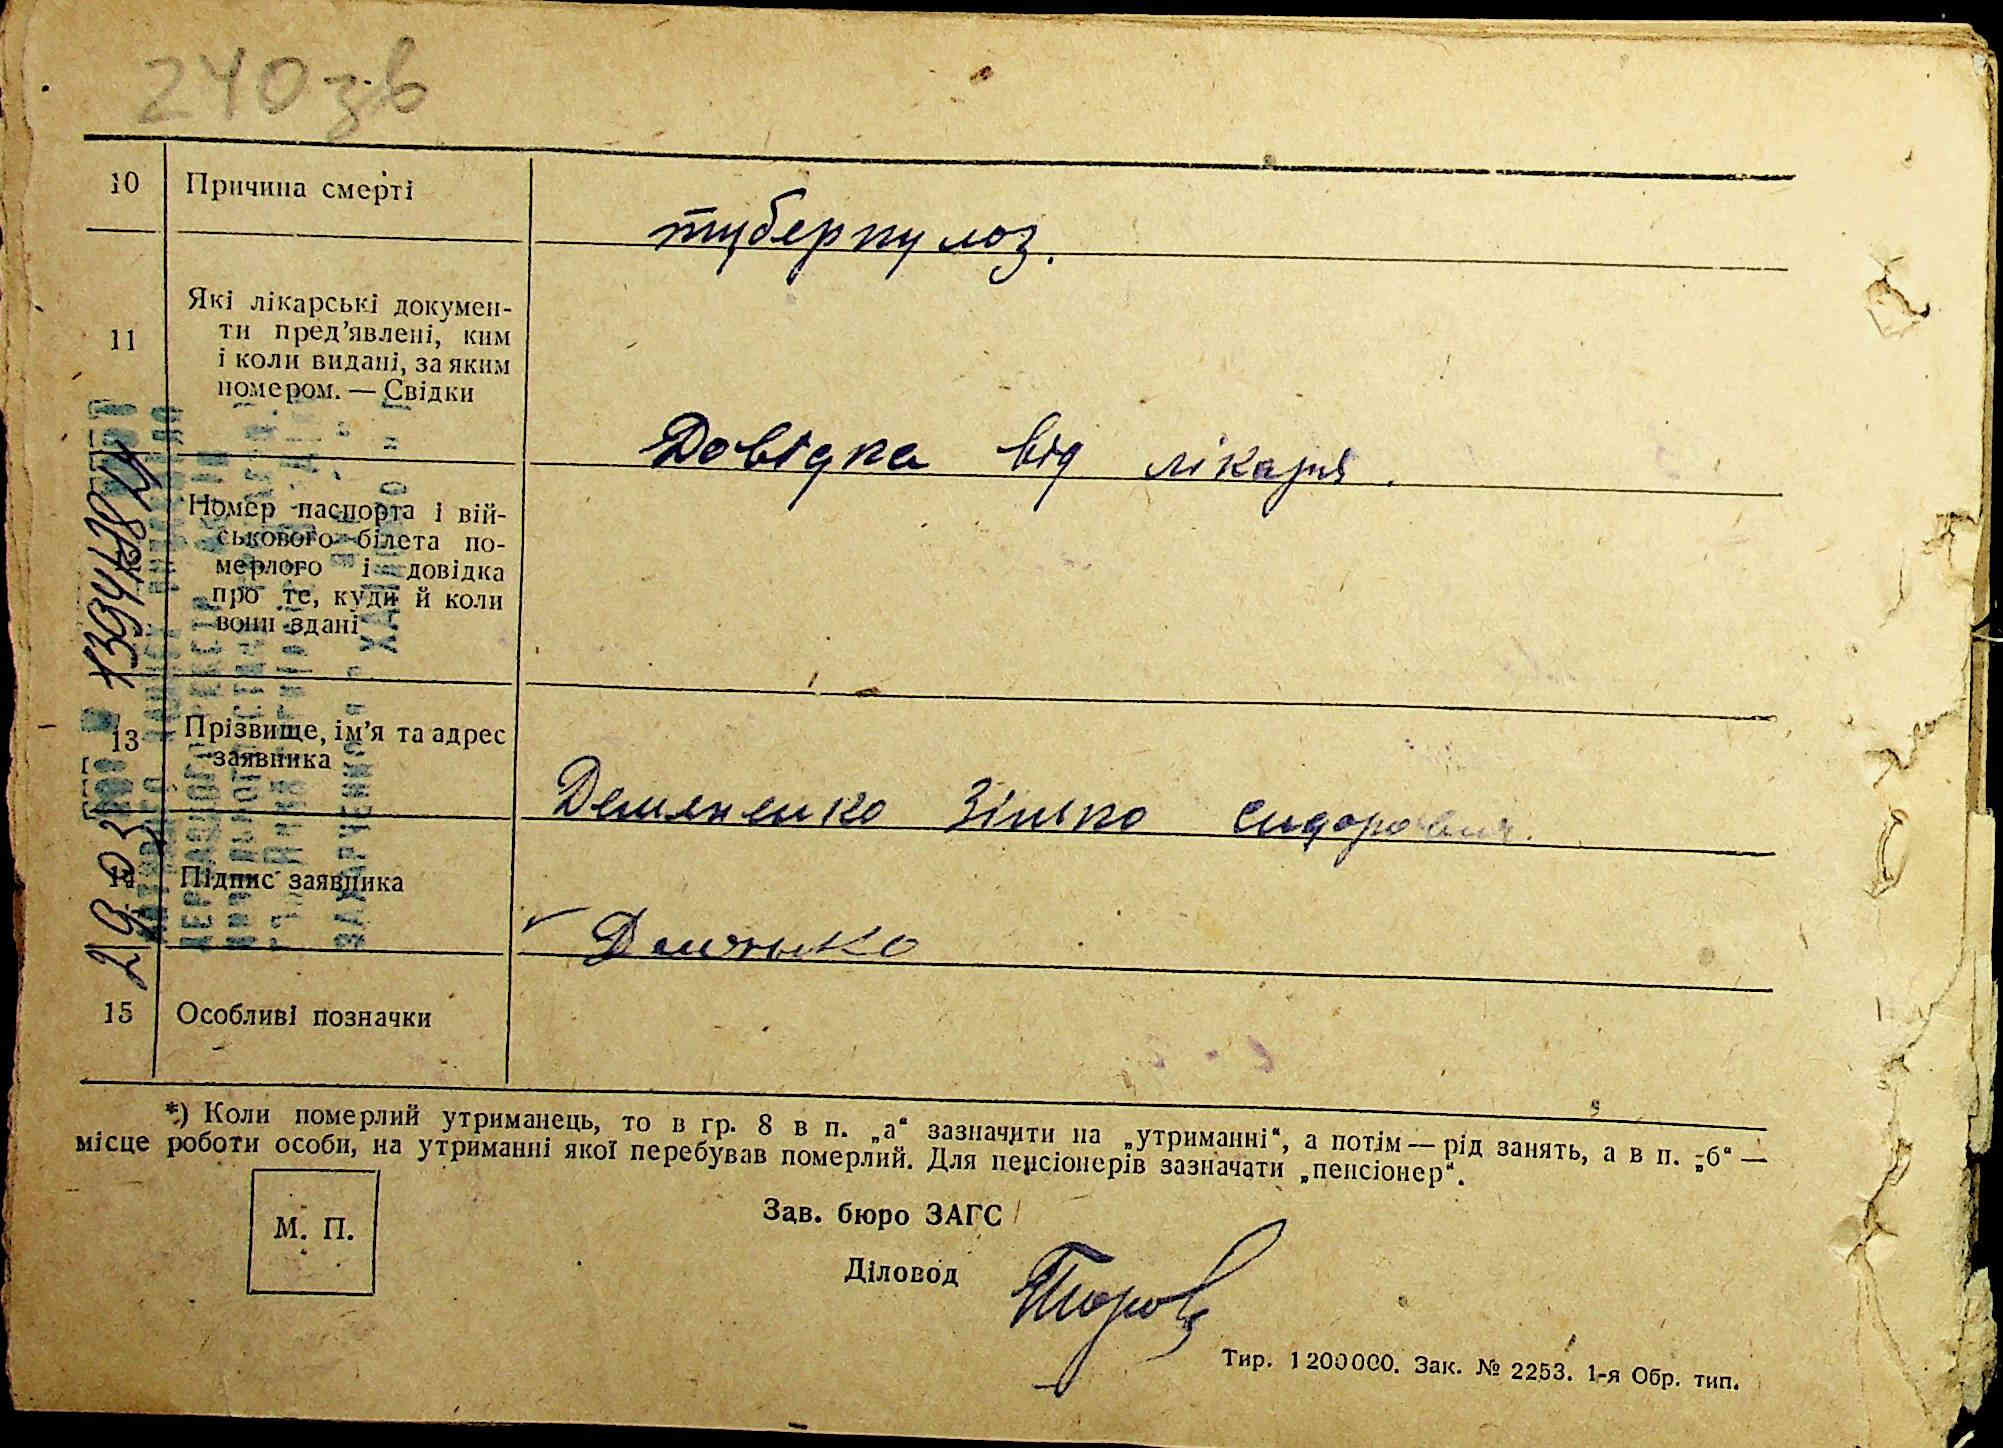 240 зв
10 Причина смерті
туберкулоз.
11 Які лікарські докумен-
ти пред'явлені, ким
і коли видані, за яким
номером. — Свідки
Довідка від лікаря.
Номер паспорта і вій-
ськового білета по-
мерлого і довідка
про те, куди й коли
вони здані
13 Прізвище, ім'я та адрес
заявника
Демяненко Зінько Сидорович.
14 Підпис заявника
15 Особливі позначки
*) Коли померлий утриманець, то в гр. 8 в п. „а“ зазначити на „утриманні“, а потім — рід занять, а в п. „б“ —
місце роботи особи, на утриманні якої перебував померлий. Для пенсіонерів зазначати „пенсіонер“.
М. П.
Зав. бюро ЗАГС
Діловод
Тир. 1200000. Зак. № 2253. 1-я Обр. тип.